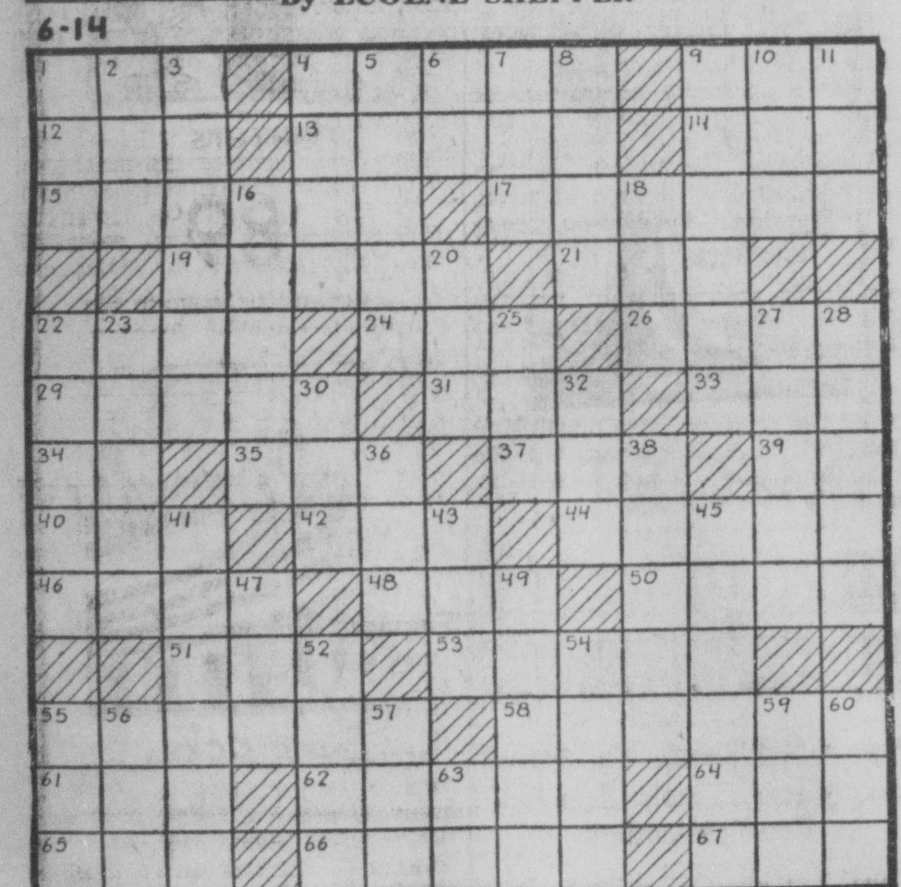 By EUGENE SHEFFER
6-14
1 2 3 4 5 6 7 8 9 10 11
12 13 14
15 16 17 18
19 20 21
22 23 24 25 26 27 28
29 30 31 32 33
34 35 36 37 38 39
40 41 42 43 44 45
46 47 48 49 50
51 52 53 54
55 56 57 58 59 60
61 62 63 64
65 66 67